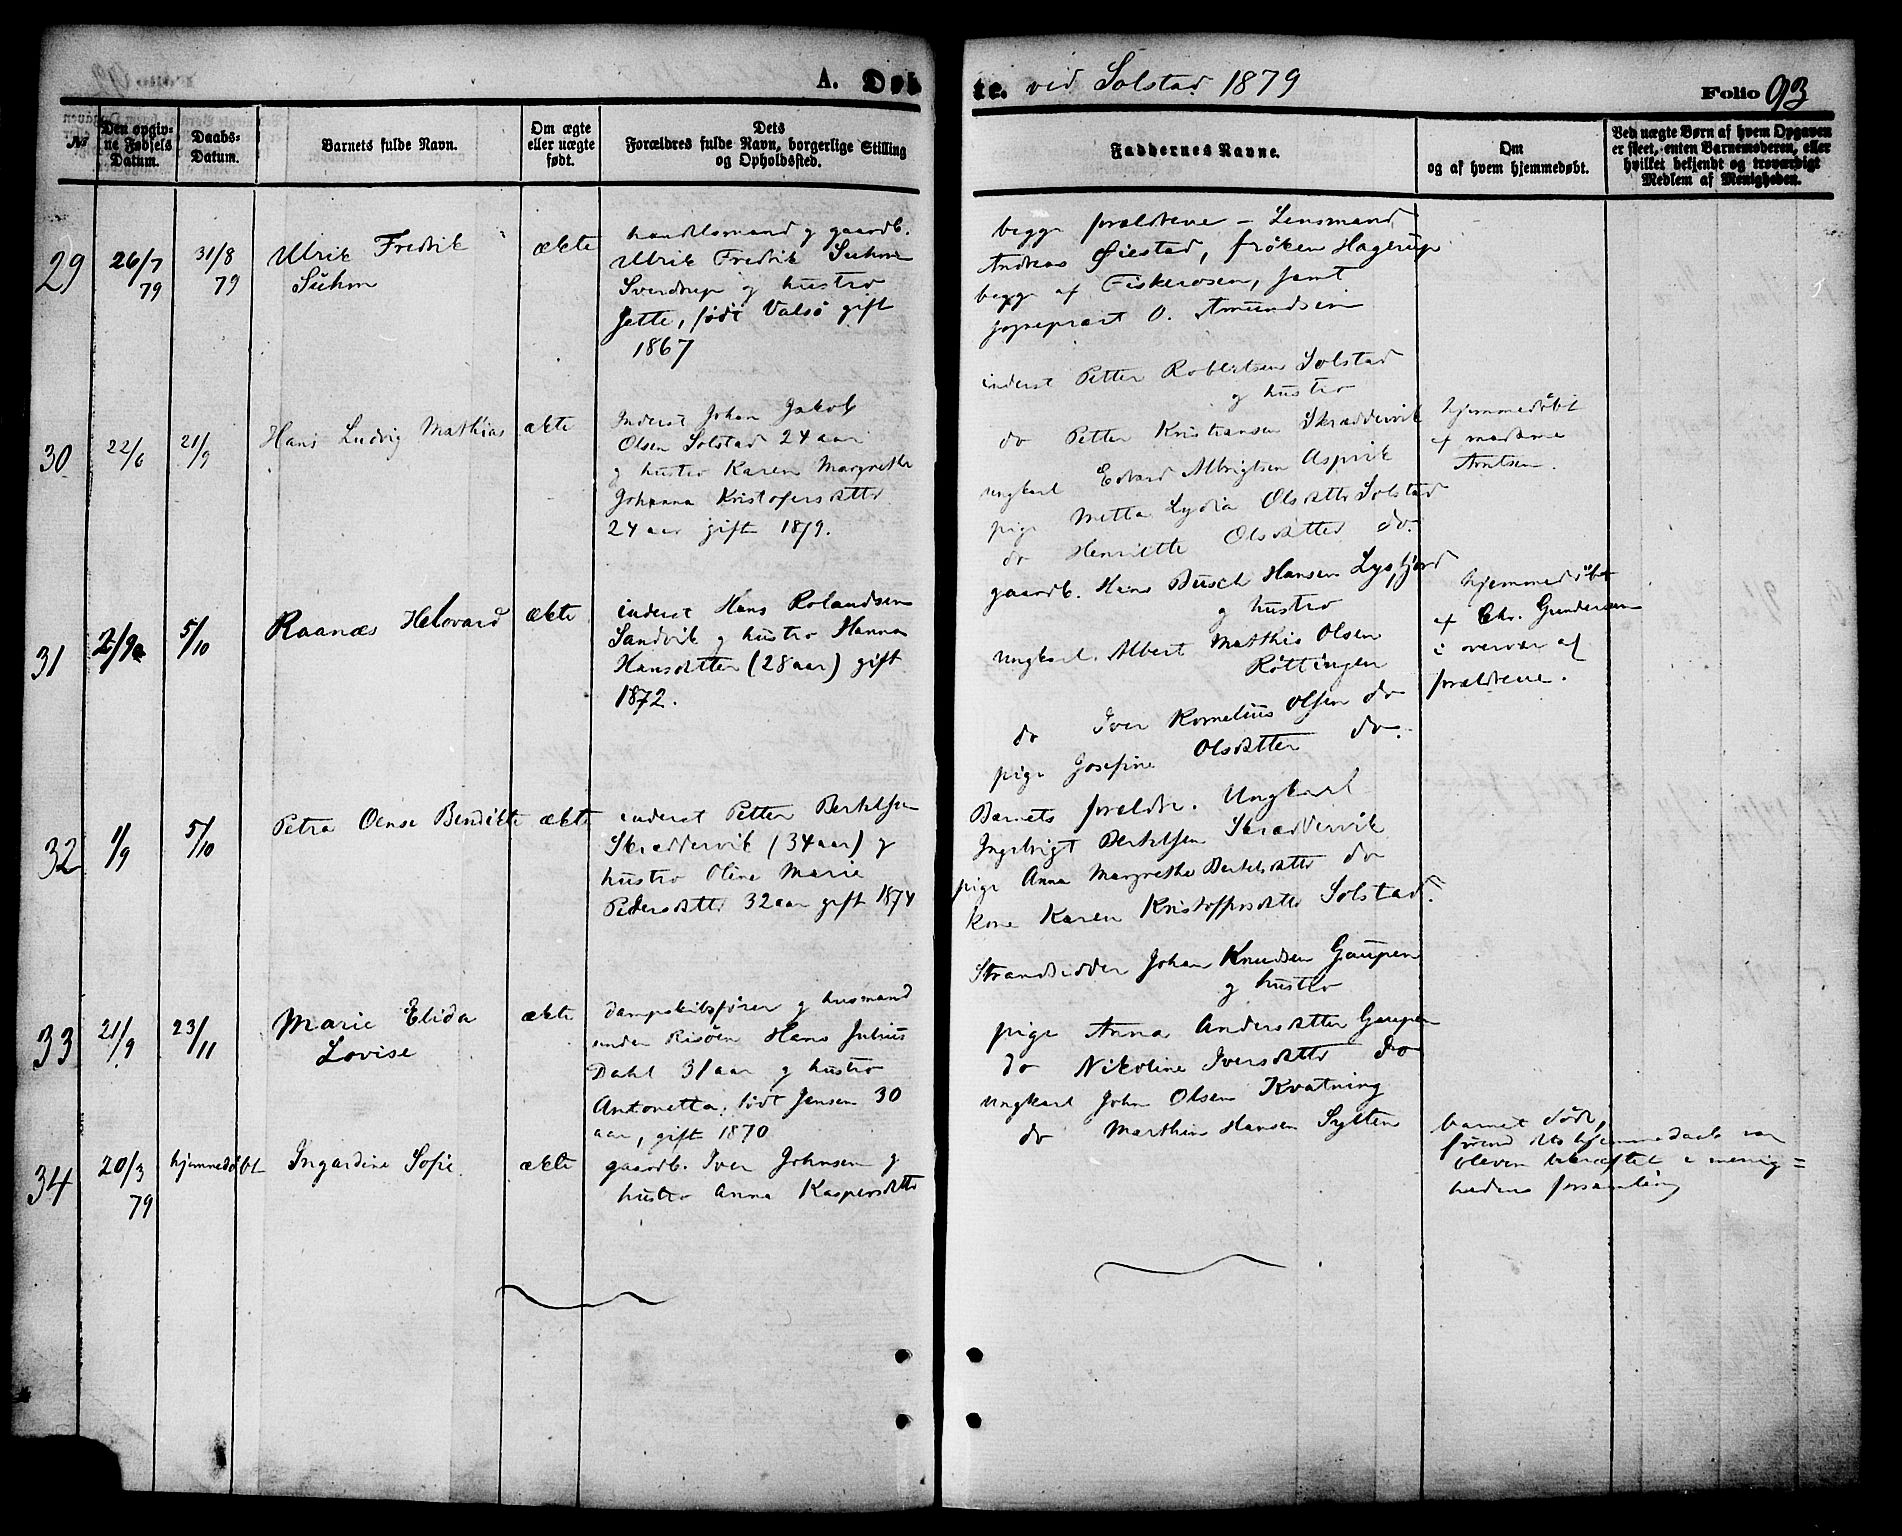 A. Døb
te. ved Solstad 1879
Folio 93
№
Den opgiv-
ne Fødsels
Datum.
Daabs-
Datum.
Barnets fulde Navn.
Om ægte
eller uægte
født.
Dets
Forældres fulde Navn, borgerlige Stilling
og Opholdssted.
Faddernes Navne.
Om
og af hvem hjemmedøbt.
Ved uægte Børn af hvem Opgaven
er skeet, enten Barnemoderen, eller
hvilket bekjendt og troværdigt
Medlem af Menigheden.
29
26/7
79
31/8
79
Ulrik Fredrik
Suhm
ækte
handelsmand g gaardb.
Ulrik Fredrik Suhm
Sverdrup g hustro
Jette, født Valsø gift
1867
begge forældrene - Lensmand
Andreas Øiestad, frøken Hagerup
begge af Fiskerosen, samt
O. Amundsen
30
22/6
21/9
Hans Ludvig Mathias
ækte
Inderst Johan Jakob
Olsen Solstad 24 aar
g hustro Karen Margrethe
Johanna Kristofersdatter
24 aar gift 1879.
inderst Petter Robertsen Solstad
g hustro
do Petter Kristiansen Skræddervik
ungkarl Edvard Albrigtsen Aspvik
pige Metta Lydia Olsdatter Solstad
do Henriette Olsdatter do.
hjemmedøbt
af madame
Arntsen.
31
2/9
5/10
Raanæs Helovard
ækte
inderst Hans Rolandsen
Sandvik g hustro Hanna
Hansdatter (28 aar) gift
1872.
gaardb. Hans Busch Hansen Lysfjord
g hustro
ungkarl. Albert Mathis Olsen
Røttingen
do Iver Kornelius Olsen do
pige Josefine Olsdatter do.
hjemmedøbt
af Chr. Gundersen
i overvær af
forældrene.
32
1/9
5/10
Petra Oense Bendikte
ækte
inderst Petter Bertelsen
Skræddervik (34 aar) g
hustro Oline Marie
Pedersdatter 32 aar gift 1874
Barnets forældre. Ungkarl
Ingebrigt Bertelsen Skræddervik
pige Anna Margrethe Bertelsdatter do
kone Karen Kristoffersdatter Solstad.
33
21/9
23/11
Marie Elida
Lovise
ækte
dampskibsfører g husmand
under Risøen Hans Julius
Dahl 31 aar g hustro
Antonetta, født Jensen 30
aar, gift 1870
Strandsidder Johan Knudsen Gaupen
g hustro
pige Anna Andersdatter Gaupen
do Nikoline Iversdatter do
ungkarl John Olsen Kvatning
do Marthin Hansen Sylten
34
20/3
79
hjemmedøbt
Ingardine Sofie.
ækte
gaardb. Iver Johnsen g
hustro Anna Kaspersdatter
barnet døde,
førend dets hjemmedaab var
bleven bekræftet i menig=
hedens forsamling